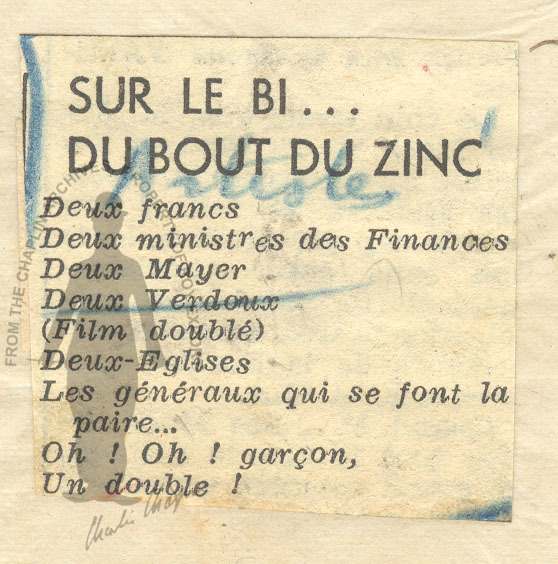 SUR LE BI...
DU BOUT DU ZINC
Artiste
Deux francs
Deux ministres des Finances
Deux Mayer
Deux Verdoux
(Film doublé)
Deux-Eglises
Les généraux qui se font la
paire...
Oh ! Oh ! garçon,
Un double !
FROM THE CHAPLIN ARCHIVE
Charlie Chap